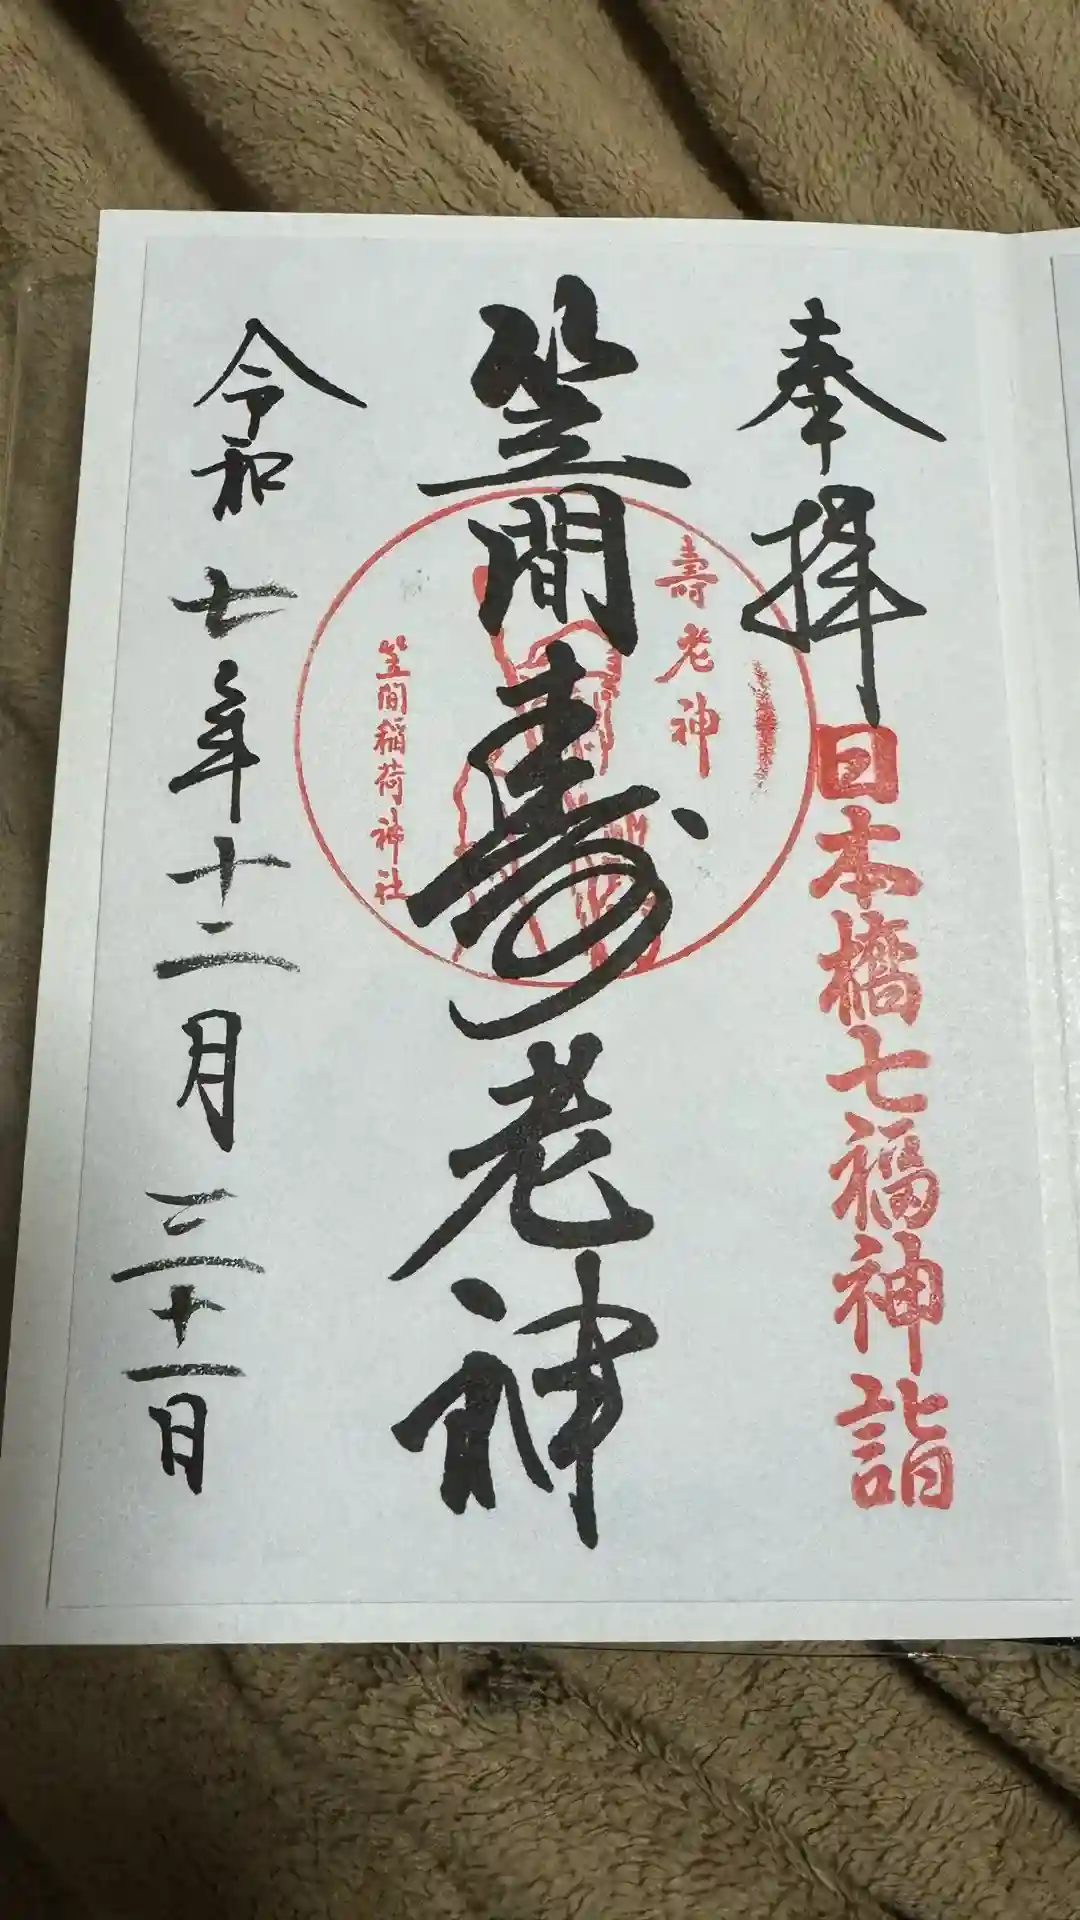 奉拝
日本橋七福神詣
笠間寿老神
壽老神
笠間稲荷神社
令和七年十二月三十一日